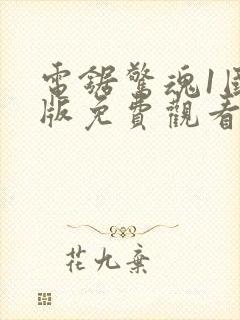 電鋸驚魂1國
版免費觀看
花九棄